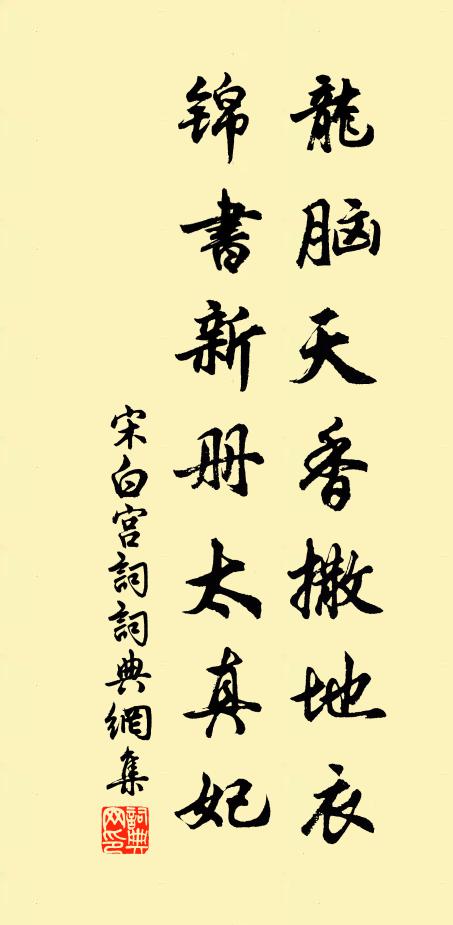 龍脑天香撒地衣
锦書新册太真妃
宋白宫詞詞典網集
詞典网印